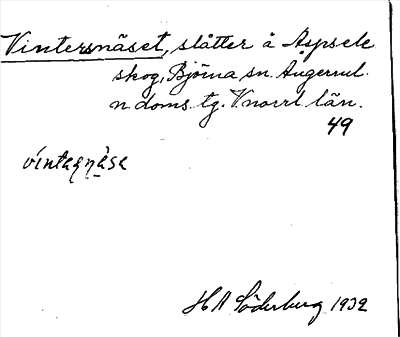 Vintersnäset, slåtter å Aspsele
skog, Björna sn. Ångermanl.
n doms. tg. Vnorrl län.
49
H A Söderberg 1932